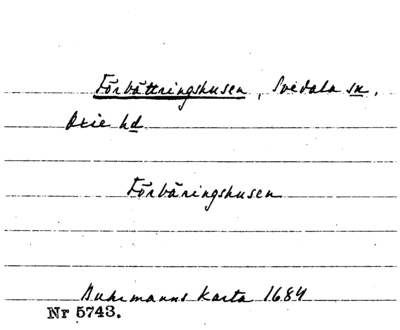 Förbättringshusen, Svedala sn,
Oxie hd
Förbäringshusen
Buhrmanns karta 1684
Nr 5743.